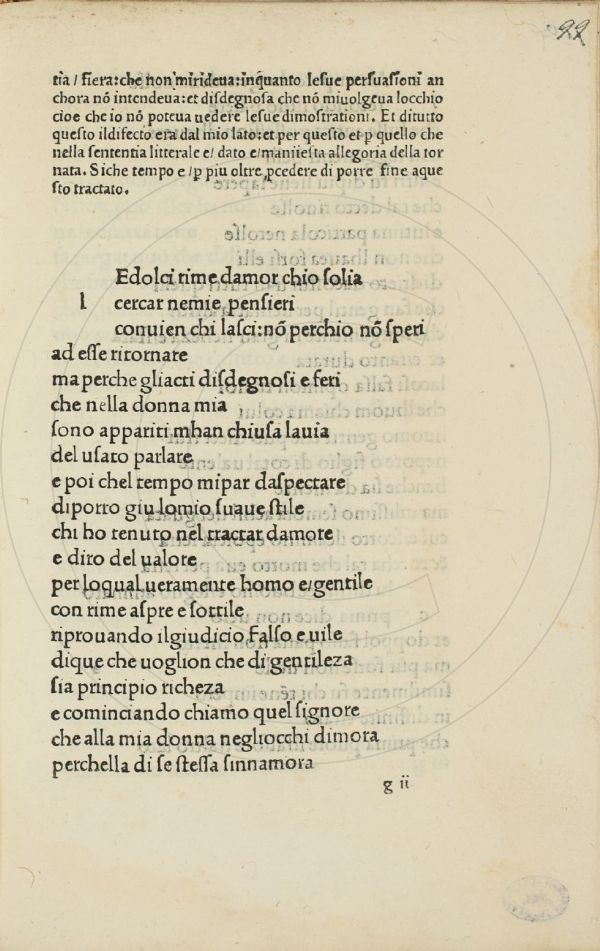 99
tia / fiera:che non mirideua:inquanto lesue persuassoni an
chora nō intendeua:et disdegnosa che nō miuolgeua locchio
cioe che io nō poteua uedere lesue dimostrationi. Et ditutto
questo ildifecto era dal mio lato:et per questo et p quello che
nella sententia litterale e/ dato e/maniiesta allegoria della tor
nata. Siche tempo e/p piu oltre pcedere di porre fine aque
sto tractato.
Edolci rime damor chio solia
l cercar nemie pensieri
conuien chi lasci:nō perchio nō speri
ad esse ritornare
ma perche gliacti disdegnosi e feri
che nella donna mia
sono appariti mhan chiusa lauia
del usato parlare
e poi chel tempo mipar daspectare
diporro giu lomio suaue stile
chi ho tenuto nel tractar damore
e diro del ualore
per loqual ueramente homo e/gentile
con rime aspre e sottile
riprouando ilgiudicio falso e uile
dique che uoglion che di gentileza
sia principio richeza
e cominciando chiamo quel signore
che alla mia donna negliocchi dimora
perchella di se stessa sinnamora
g ii